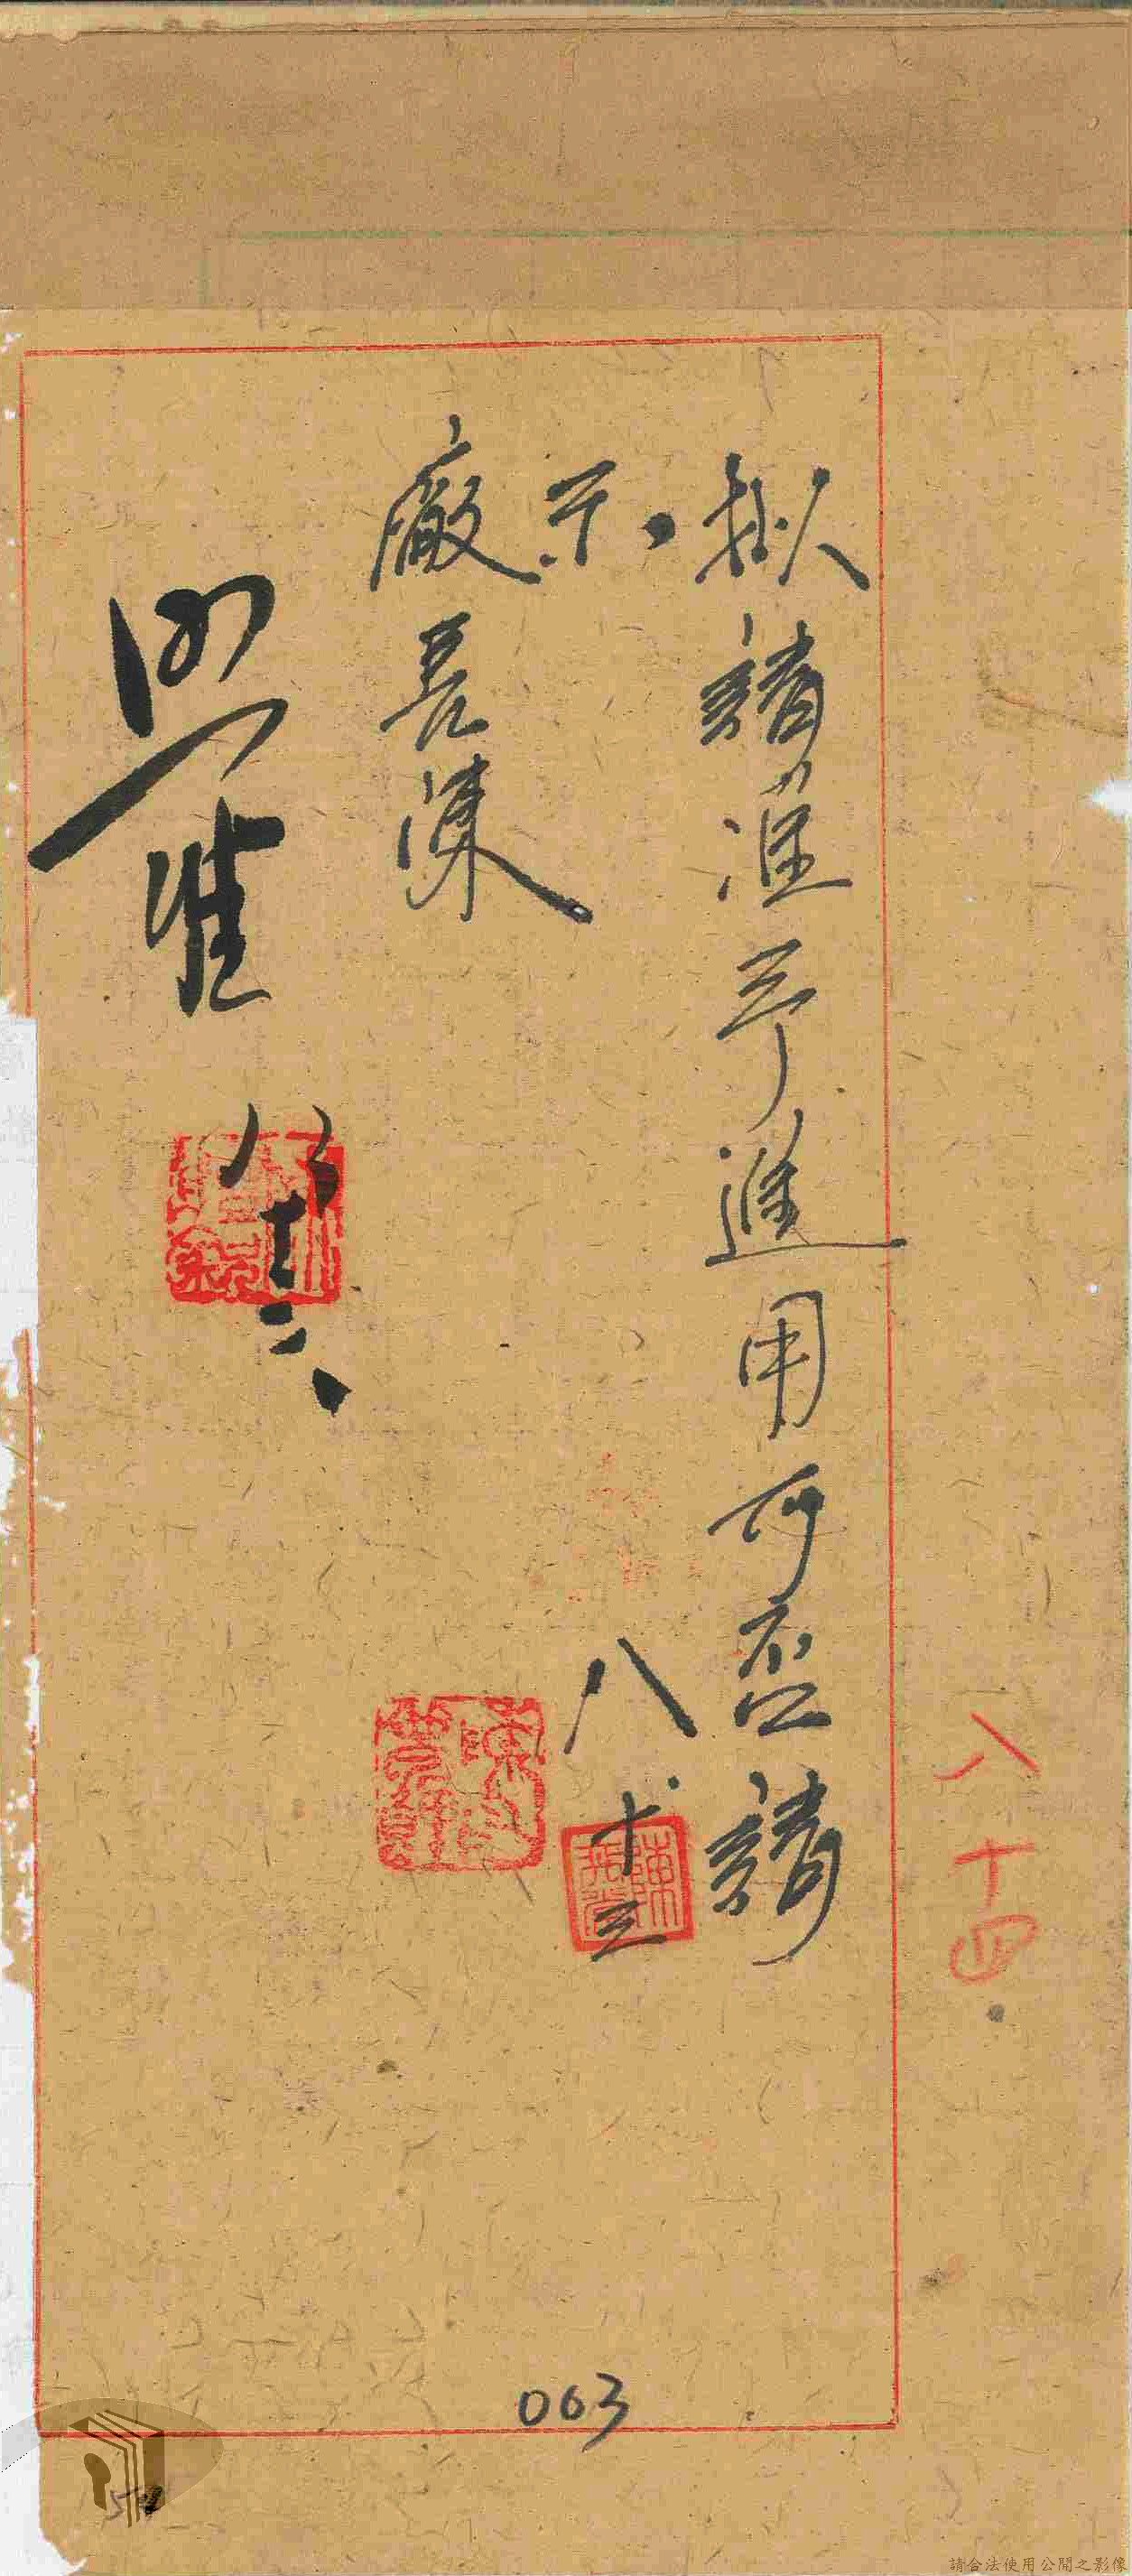 八 十四
擬請准予進用可否請
示
八 十三
廠長陳
照准
八 十三
003
請合法使用公開之影像